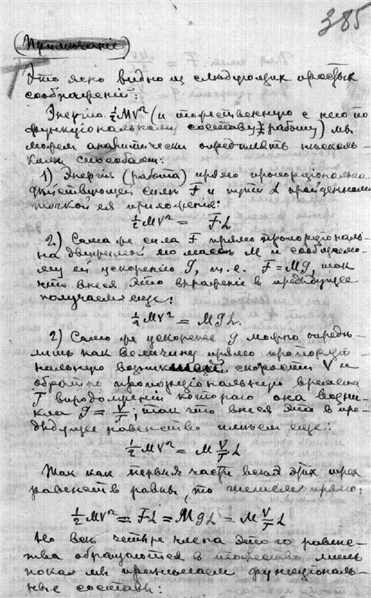 385
(Примечанiе)
Это ясно видно из следующих простых
соображенiй:
Энергiю ½MV² (и тожественную с него по
функцiональному составу работу) мы
можем аналитически определить нѣсколь-
кими способами:
1) Энергiя (работа) прямо пропорцiональна
дѣйствующей силѣ F и пути L пройденному
точкой ея приложенiя:
½MV² = FL
2) Сама же сила F прямо пропорцiональ-
на движимой ею массѣ M и сообщаемо-
му ей ускоренiю g, т.е. F = Mg, так
что внеся это выраженiе в предыдущее
получаем еще:
½MV² = MgL.
2) Само же ускоренiе g можно опредѣ-
лить как величину прямо пропорцiо-
нальную возникшей скорости V и
обратно пропорцiональную времени
T впродолженiи котораго она возни-
кла g = V/T, так что внеся это в пре-
дыдущее равенство имѣем еще:
½MV² = M V/T L
Так как первыя части всѣх этих трех
равенств равны, то прямо:
½MV² = FL = MgL = M V/T L
Но всѣ четыре члена этого равен-
ства обращаются в лишь
пока мы функцiональ-
ные составы: